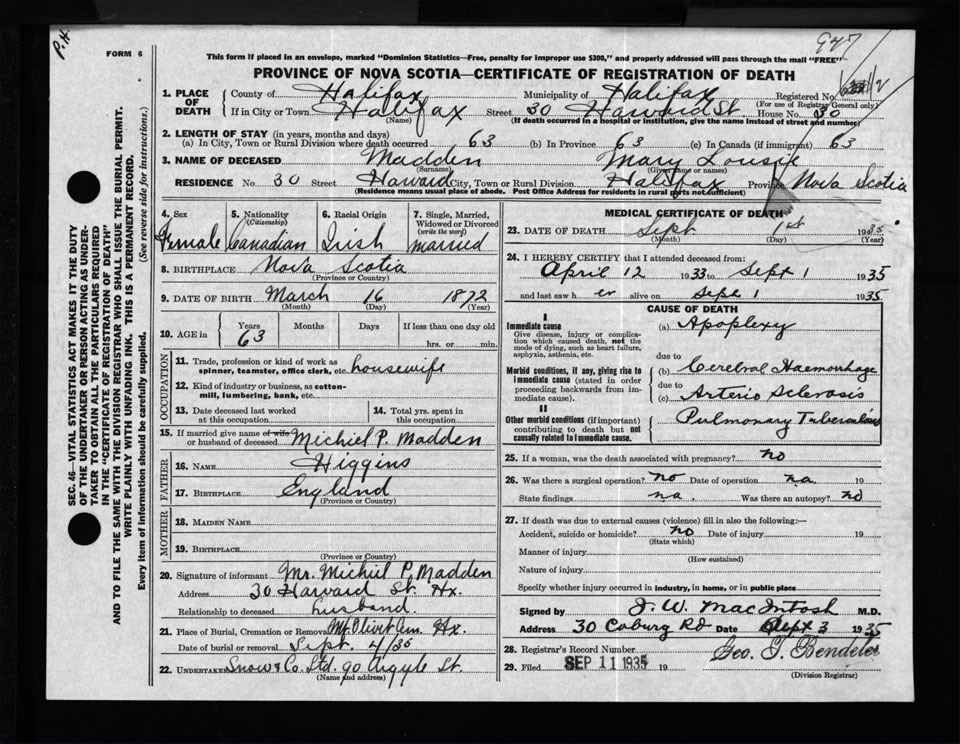 P.H.
947
FORM 6
This form if placed in an envelope, marked "Dominion Statistics—Free, penalty for improper use $300," and properly addressed will pass through the mail "FREE"
PROVINCE OF NOVA SCOTIA—CERTIFICATE OF REGISTRATION OF DEATH
1. PLACE OF DEATH County of Halifax Municipality of Halifax Registered No.
(For use of Registrar General only)
If in City or Town Halifax Street 30 Harvard St. House No. 30
(Name) (If death occurred in a hospital or institution, give the name instead of street and number)
2. LENGTH OF STAY (in years, months and days)
(a) In City, Town or Rural Division where death occurred 63 (b) In Province 63 (c) In Canada (if immigrant) 63
3. NAME OF DECEASED Madden Mary Lousie
(Surname) (Given name or names)
RESIDENCE No. 30 Street Haward City, Town or Rural Division Halifax Province Nova Scotia
(Residence means usual place of abode. Post Office Address for residents in rural parts not sufficient)
4. Sex 5. Nationality (Citizenship) 6. Racial Origin 7. Single, Married, Widowed or Divorced (write the word)
Female Canadian Irish married
8. BIRTHPLACE Nova Scotia
(Province or Country)
9. DATE OF BIRTH March 16 1872
(Month) (Day) (Year)
10. AGE in Years Months Days If less than one day old
63 hrs. or min.
OCCUPATION
11. Trade, profession or kind of work as spinner, teamster, office clerk, etc. housewife
12. Kind of industry or business, as cotton-mill, lumbering, bank, etc.
13. Date deceased last worked at this occupation 14. Total yrs. spent in this occupation
15. If married give name of wife or husband of deceased Michiel P. Madden
FATHER
16. NAME Higgins
17. BIRTHPLACE England
(Province or Country)
MOTHER
18. MAIDEN NAME
19. BIRTHPLACE
(Province or Country)
20. Signature of informant Mr. Michiel P. Madden
Address 30 Harvard St. Hx.
Relationship to deceased husband.
21. Place of Burial, Cremation or Removal Mt Olivet Cem. Hx.
Date of burial or removal Sept. 4/35
22. UNDERTAKER Snow & Co. Ltd. 90 Argyle St.
(Name and address)
MEDICAL CERTIFICATE OF DEATH
23. DATE OF DEATH Sept 1st 1935
(Month) (Day) (Year)
24. I HEREBY CERTIFY that I attended deceased from:
April 12 1933 to Sept 1 1935
and last saw h er alive on Sept 1 1935
CAUSE OF DEATH
I
Immediate cause
Give disease, injury or complication which caused death, not the mode of dying, such as heart failure, asphyxia, asthenia, etc.
(a) Apoplexy
due to
Morbid conditions, if any, giving rise to immediate cause (stated in order proceeding backwards from immediate cause).
(b) Cerebral Haemorrhage
due to
(c) Arterio Sclerosis
II
Other morbid conditions (if important) contributing to death but not causally related to immediate cause.
Pulmonary Tuberculosis
25. If a woman, was the death associated with pregnancy? no
26. Was there a surgical operation? no Date of operation na 19
State findings na. Was there an autopsy? no
27. If death was due to external causes (violence) fill in also the following:—
Accident, suicide or homicide? no Date of injury 19
(State which)
Manner of injury
(How sustained)
Nature of injury
Specify whether injury occurred in industry, in home, or in public place
Signed by J. W. MacIntosh M.D.
Address 30 Coburg Rd Date Sept 3 1935
28. Registrar's Record Number
29. Filed SEP 11 1935 19 Geo. T. Bendeler
(Division Registrar)
SEC. 46—VITAL STATISTICS ACT MAKES IT THE DUTY OF THE UNDERTAKER OR PERSON ACTING AS UNDERTAKER TO OBTAIN ALL THE PARTICULARS REQUIRED IN THE "CERTIFICATE OF REGISTRATION OF DEATH"
AND TO FILE THE SAME WITH THE DIVISION REGISTRAR WHO SHALL ISSUE THE BURIAL PERMIT.
WRITE PLAINLY WITH UNFADING INK. THIS IS A PERMANENT RECORD.
Every item of information should be carefully supplied. (See reverse side for instructions.)